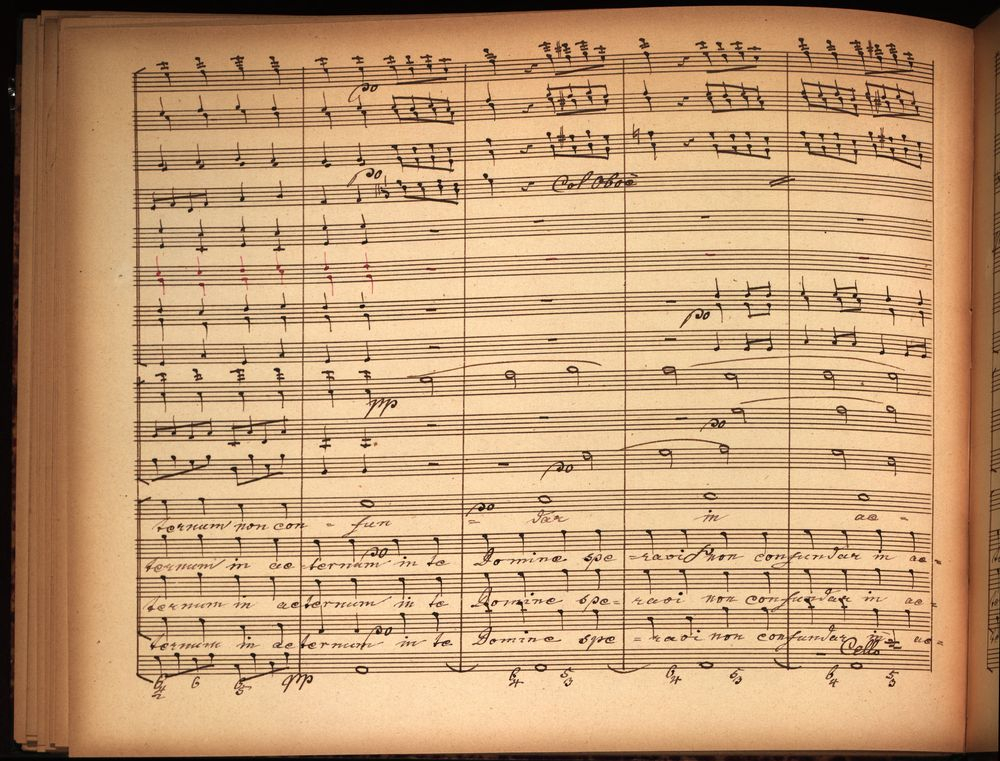 po
po
Col Oboe
po
pp
po
po
po
ternum non con - fun = dar in ae =
po
ternum in ae ternum in te Domine spe =ravi non confundar in ae =
ternum in aeternum in te Domine spe= ravi non confundar in ae =
po
ternum in ae ternum in te Domine spe = ravi non confundar in ae=
Cello
6 4 2 6 6 5 pp 6 4 5 3 6 4 5 3 6 4 5 3